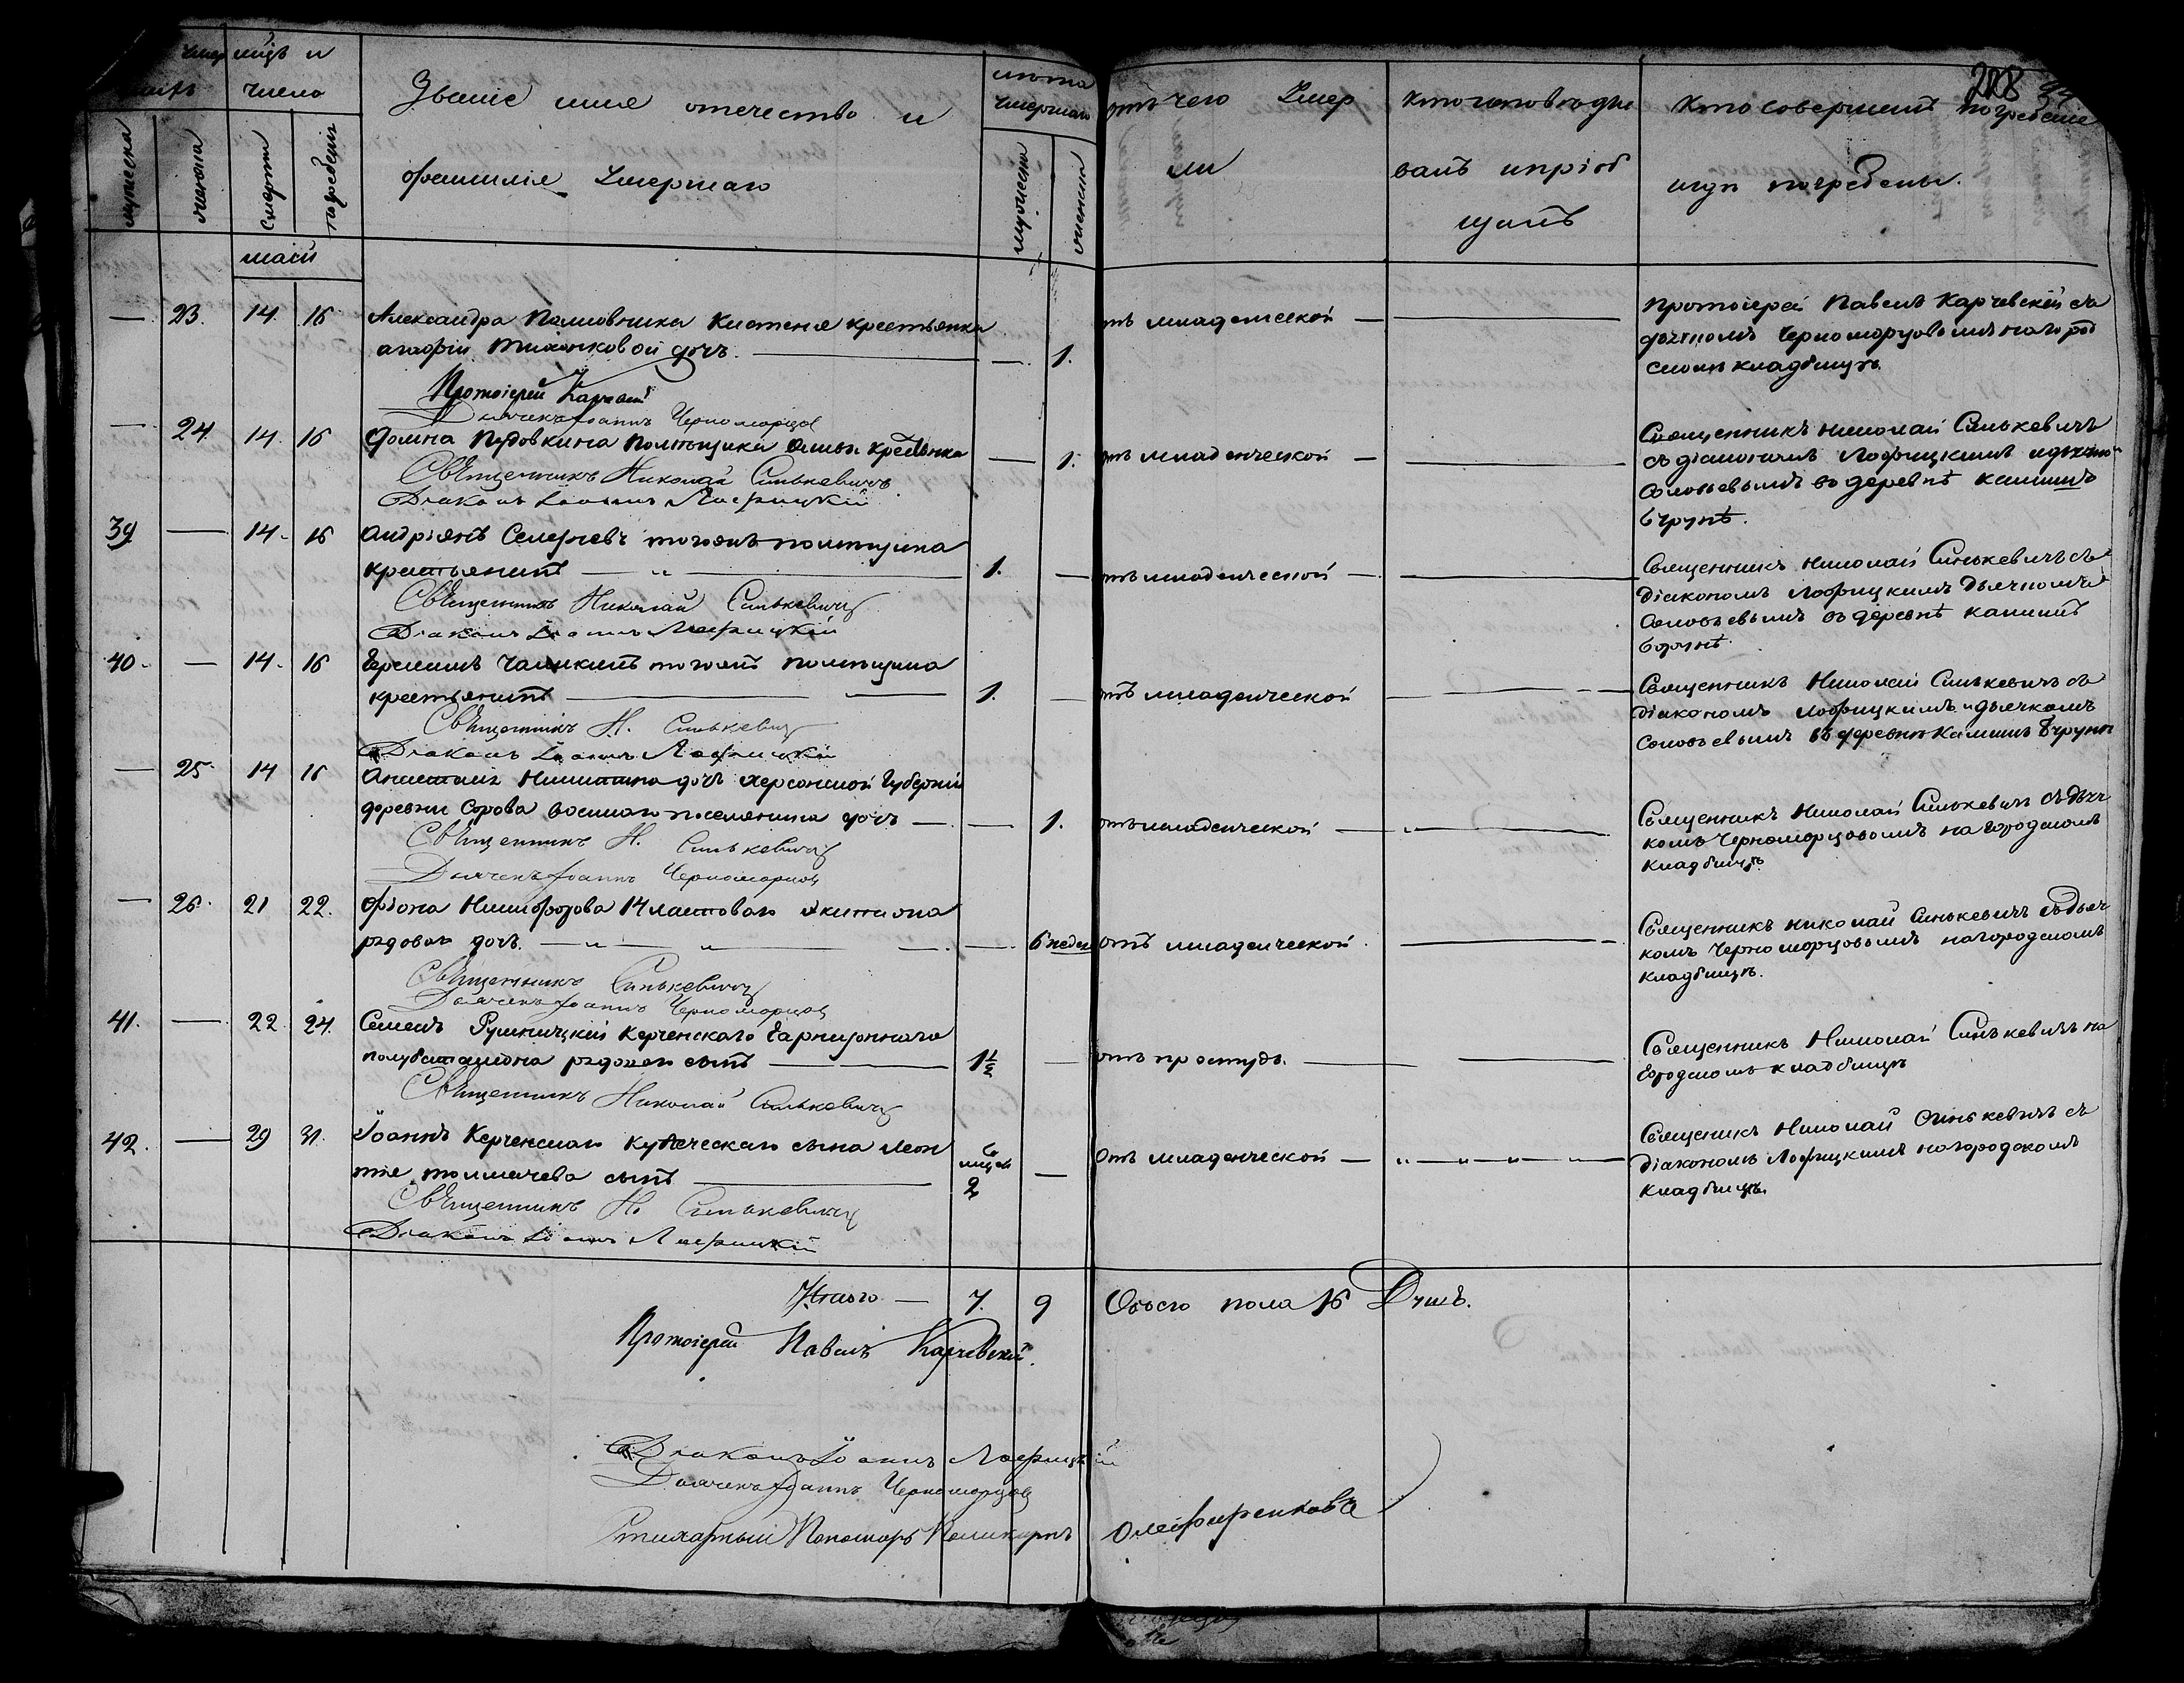 208
умер мцъ и
число
мужеска
женска
смерти
погребенія
Званіе имя отечество и
фамиліе Умершаго
лѣта
умершаго
мужеска
женска
отъ чего Умер
ли
кто исповѣды
валъ и пріоб
щалъ
кто совершалъ погребеніе
и гдѣ погребены.
маій
— 23. 14. 16
Александра Полковника крестьянка
дочь. — — 1.
отъ младенческой — —
Протоіерей Павелъ Карчевскій съ
дьячкомъ Черноморцовымъ на город
скомъ кладбищѣ.
Протоіерей Карчевскій
Дьячекъ Іоаннъ Черноморцов
— 24. 14. 16
Помѣщика крестьянка — 1.
отъ младенческой — —
Священникъ Николай Синькевичъ
съ діакономъ Лофицкимъ и дьячкомъ
Соловьевымъ въ деревнѣ камышъ
бурунѣ.
Священникъ Николай Синькевичъ
Діаконъ Іоаннъ Лофицкій
39 — 14. 16
Андріянъ тогожъ помѣщика
крестьянинъ — „ — 1. —
отъ младенческой — —
Священникъ Николай Синькевичъ съ
діакономъ Лофицкимъ дьячкомъ
Соловьевымъ въ деревнѣ камышъ
бурунѣ.
Священникъ Николай Синькевичъ
Діаконъ Іоаннъ Лофицкій
40. — 14. 16
тогожъ помѣщика
крестьянинъ — — 1. —
отъ младенческой —
Священникъ Николай Синькевичъ съ
діакономъ Лофицкимъ и дьячкомъ
Соловьевымъ въ деревнѣ Камышъ бурунѣ
Священникъ Н. Синькевичъ
Діаконъ Іоаннъ Лофицкій
— 25. 14 16
дочь херсонской Губерніи
деревни военнаго поселянина дочь — — 1.
отъ младенческой — „ —
Священникъ Николай Синькевичъ съ дьяч
комъ Черноморцовымъ на городскомъ
кладбищѣ.
Священникъ Н. Синькевичъ
Дьячекъ Іоаннъ Черноморцов
— 26. 21 22.
Никифорова 14 ластоваго экипажа
рядоваго дочь. — „ — „ — — 6 недел
отъ младенческой. —
Священникъ Николай Синькевичъ съ дьяч
комъ Черноморцовымъ на городскомъ
кладбищѣ.
Священникъ Синькевичъ
Дьячекъ Іоаннъ Черноморцов
41. — 22. 24.
Семенъ Керченскаго Гарнизоннаго
полубаталіона рядоваго сынъ — — 1½ —
отъ простуды. — —
Священникъ Николай Синькевичъ на
Городскомъ кладбищѣ
Священникъ Николай Синькевичъ
42. — 29 31.
Іоаннъ Керченскаго купеческаго сына Леон
тія толмачева сынъ — мцов 2 —
Отъ младенческой — „ — „ — „ — „ —
Священикъ Николай Синькевичъ съ
діакономъ Лофицкимъ на городскомъ
кладбищѣ.
Священникъ Н. Синькевичъ
Діаконъ Іоаннъ Лофицкій
Итого — 7. 9 Обоего пола 16 Душъ.
Протоіерей Павелъ Карчевскій.
Діаконъ Іоаннъ Лофицкій
Дьячекъ Іоаннъ Черноморцов
Стихарный Пономарь Поликарпъ